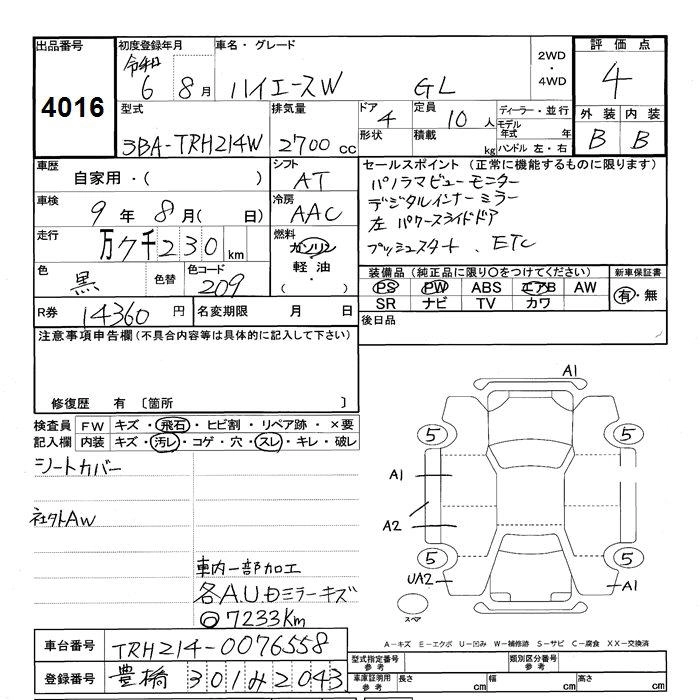 出品番号 4016
初度登録年月 令和 6 年 8月
車名・グレード ハイエースW GL
2WD・4WD
評価点 4
外装 B 内装 B
型式 3BA-TRH214W
排気量 2700 cc
ドア 4 形状
定員 10 人 積載 kg
ディーラー・並行
モデル年式 年
ハンドル 左・右
車歴 自家用・( )
シフト AT
車検 9年 8月( 日)
冷房 AAC
走行 万7千230 km
燃料 ガソリン・軽油・( )
色 黒 色替 色コード 209
R券 14360 円 名変期限 月 日
セールスポイント(正常に機能するものに限ります)
パノラマビューモニター
デジタルインナーミラー
左 パワースライドドア
プッシュスタート、ETC
装備品(純正品に限り○をつけてください) 新車保証書
PS PW ABS エアB AW 有・無
SR ナビ TV カワ
後日品
注意事項申告欄(不具合内容等は具体的に記入して下さい)
修復歴 有 〔箇所 〕
検査員記入欄
FW キズ・飛石・ヒビ割・リペア跡・×要
内装 キズ・汚レ・コゲ・穴・スレ・キレ・破レ
シートカバー
社外AW
車内一部加工
各A.U ドミラーキズ
◎7233Km
A1
5 5
A1
A2
5 5
UA2 A1
スペア
A-キズ E-エクボ U-凹み W-補修跡 S-サビ C-腐食 XX-交換済
車台番号 TRH214-0076558
登録番号 豊橋 301 み 2043
型式指定番号 参考 類別区分番号 参考
車庫証明用 参考 長さ cm 幅 cm 高さ cm